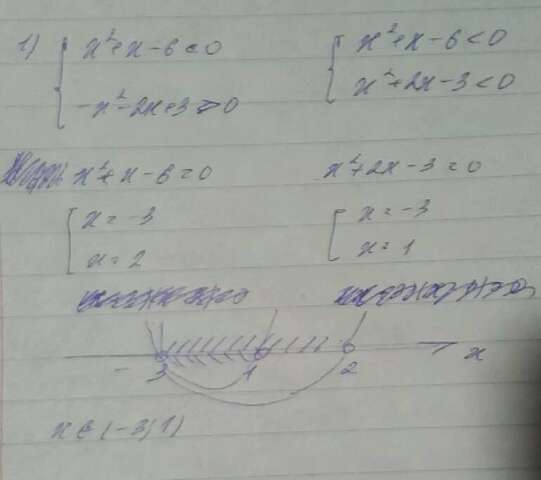 1) { x²+x-6<0 { x²+x-6<0
-x²-2x+3>0 x²+2x-3<0
x²+x-6=0 x²+2x-3=0
[ x=-3 [ x=-3
x=2 x=1
-3 1 2 x
x∈(-3;1)